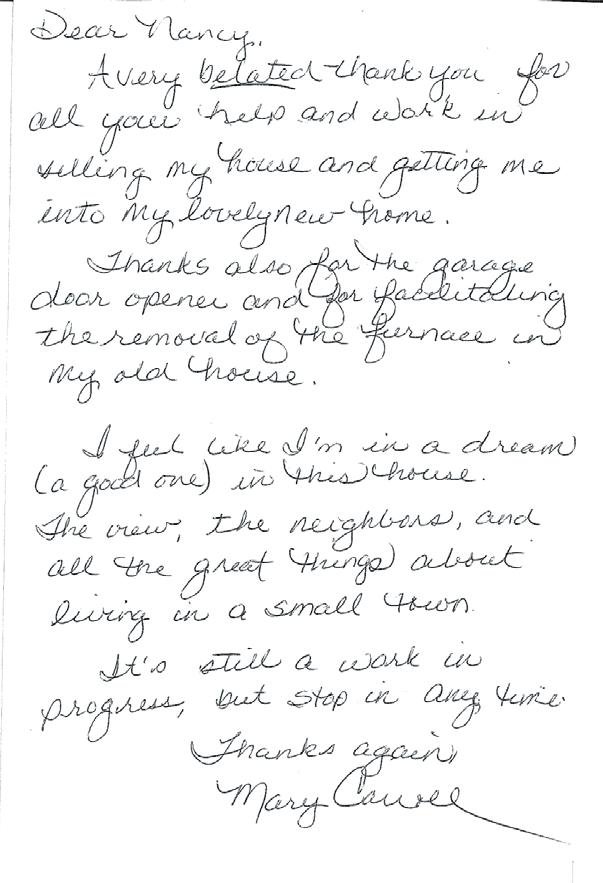 Dear Nancy,
A very belated thank you for
all your help and work in
selling my house and getting me
into my lovely new home.
Thanks also for the garage
door opener and for facilitating
the removal of the furnace in
my old house.
I feel like I'm in a dream
(a good one) in this house.
The view, the neighbors, and
all the great things about
living in a small town.
It's still a work in
progress, but stop in any time.
Thanks again,
Mary